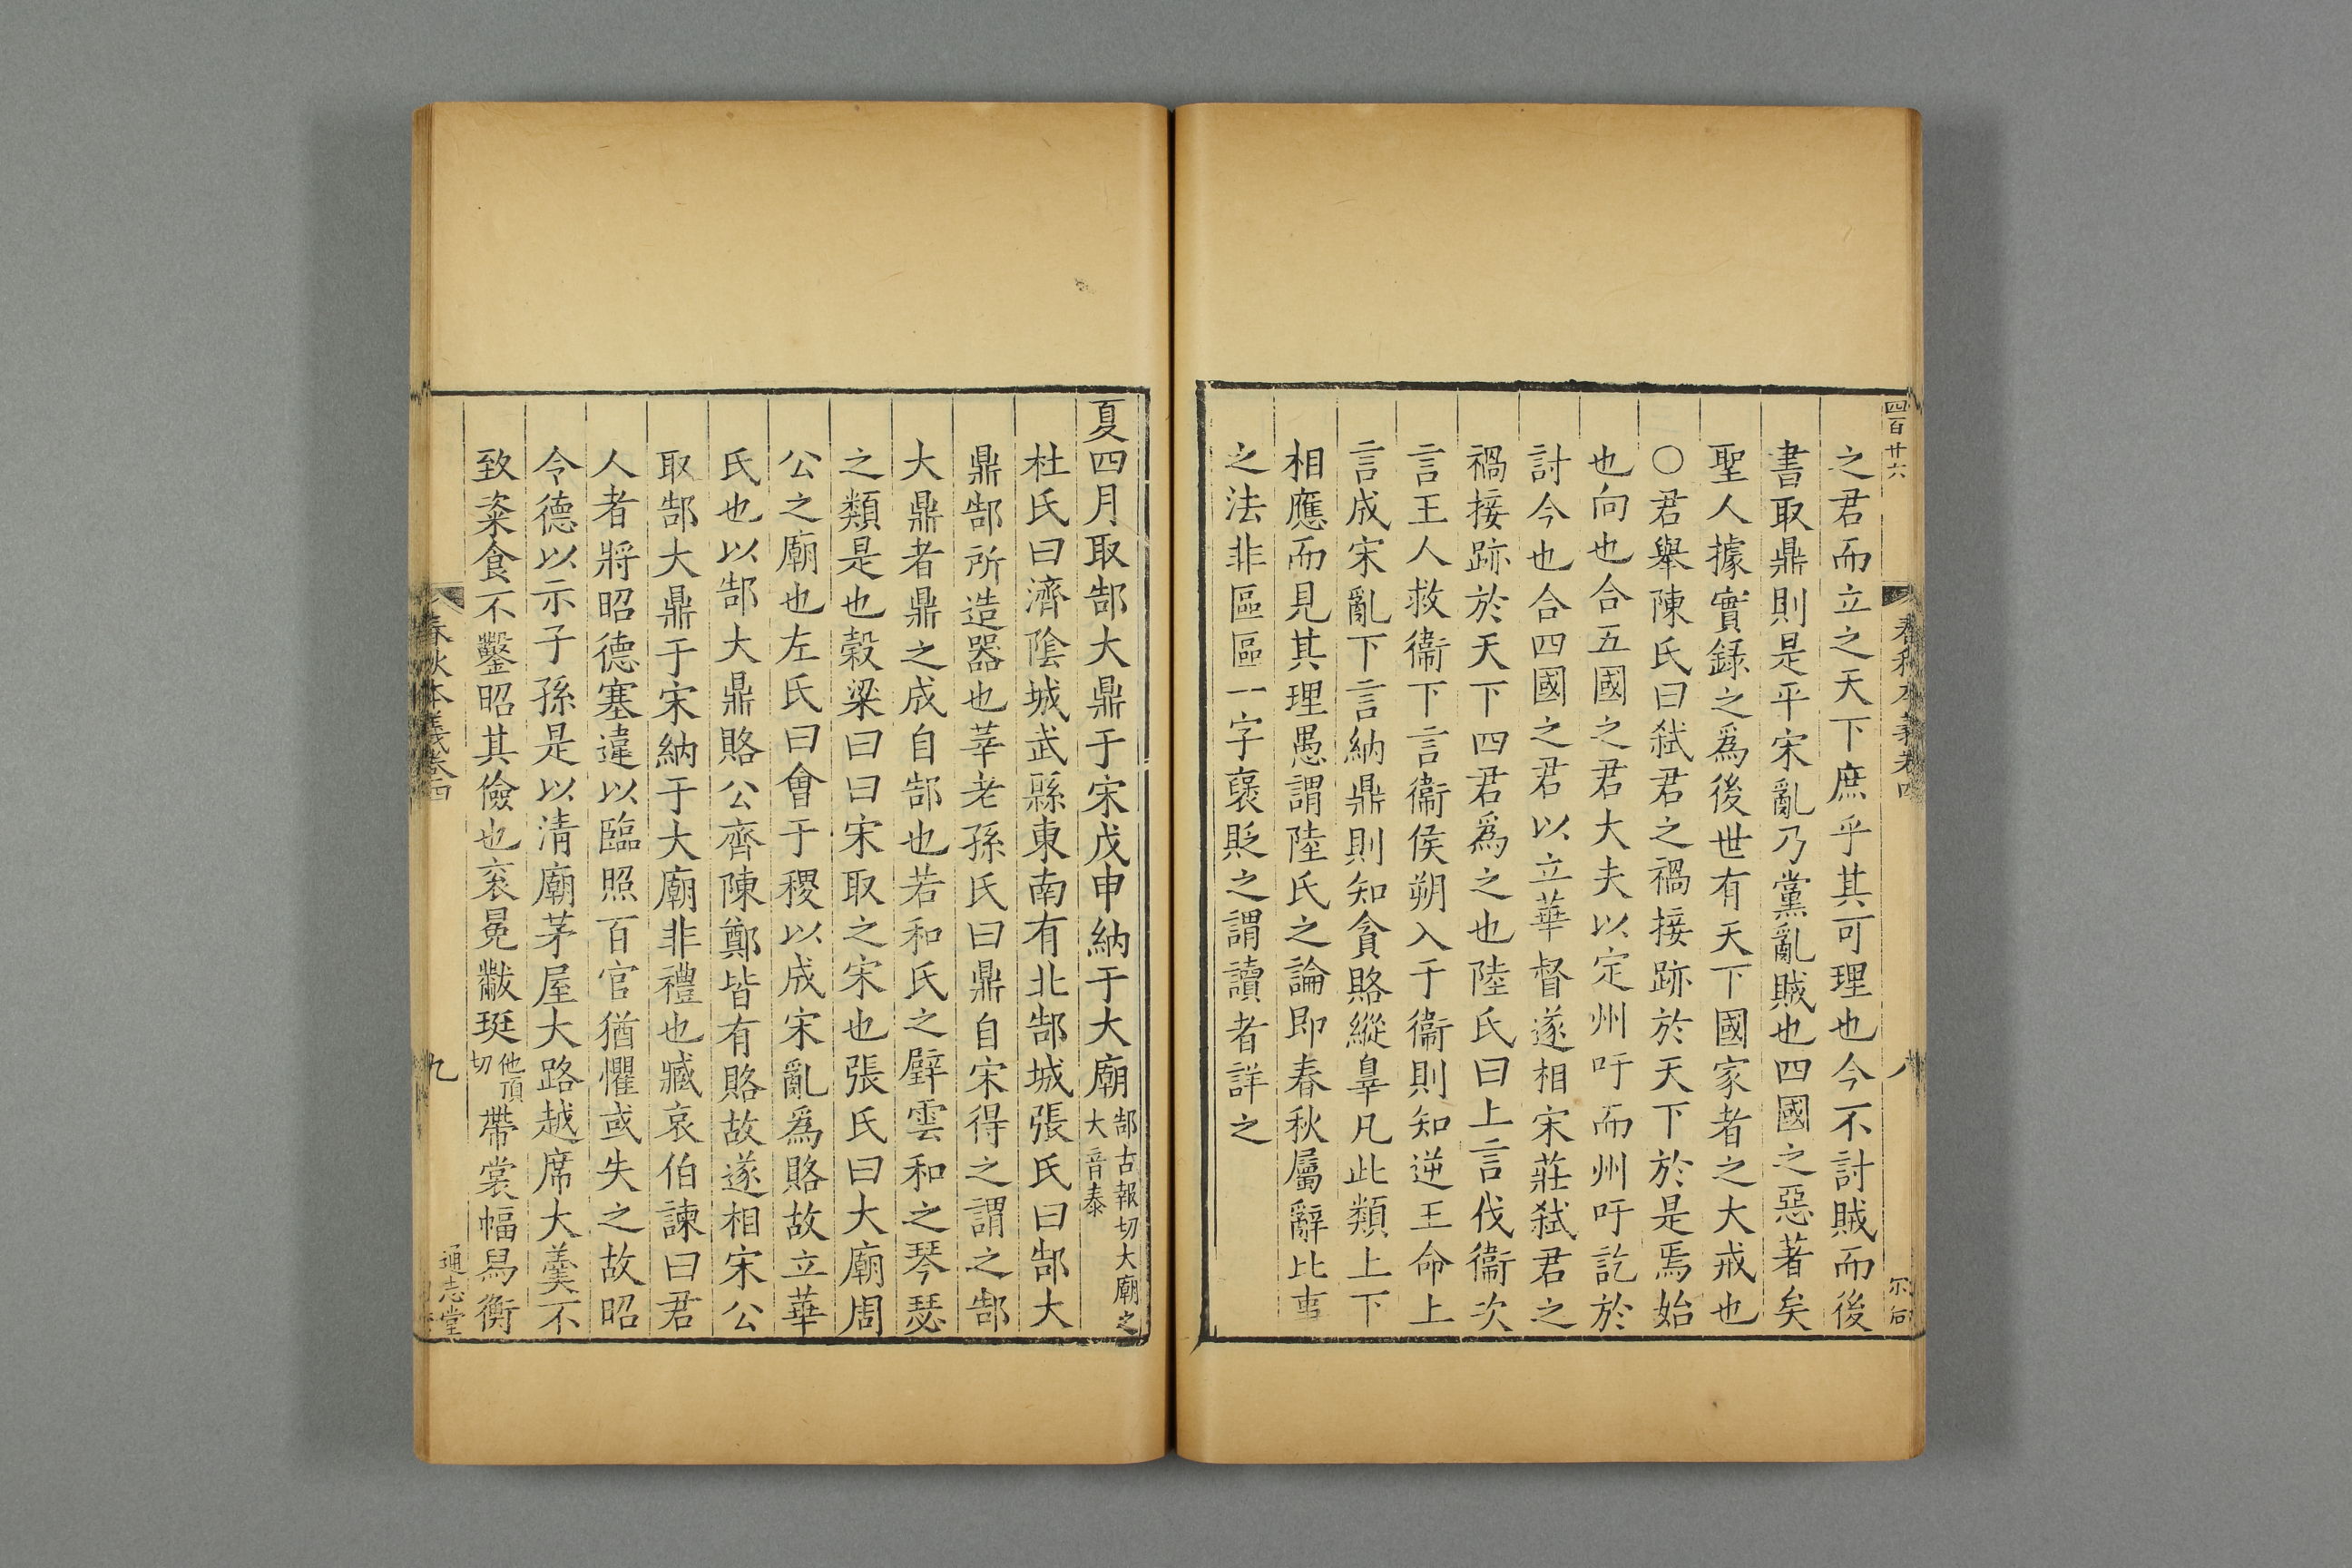 四百廿六
春秋本義卷四
八
之君而立之天下庶乎其可理也今不討賊而後
書取鼎則是平宋亂乃黨亂賊也四國之惡著矣
聖人據實録之爲後世有天下國家者之大戒也
〇君舉陳氏曰弑君之禍接跡於天下於是焉始
也向也合五國之君大夫以定州吁而州吁訖於
討今也合四國之君以立華督遂相宋莊弑君之
禍接跡於天下四君爲之也陸氏曰上言伐衞次
言王人救衞下言衞侯朔入于衞則知逆王命上
言成宋亂下言納鼎則知貪賂縱辠凡此類上下
相應而見其理愚謂陸氏之論即春秋屬辭比事
之法非區區一字襃貶之謂讀者詳之
夏四月取郜大鼎于宋戊申納于大廟郜古報切大廟之大音泰
杜氏曰濟陰城武縣東南有北郜城張氏曰郜大
鼎郜所造器也莘老孫氏曰鼎自宋得之謂之郜
大鼎者鼎之成自郜也若和氏之璧雲和之琴瑟
之類是也穀梁曰曰宋取之宋也張氏曰大廟周
公之廟也左氏曰會于稷以成宋亂爲賂故立華
氏也以郜大鼎賂公齊陳鄭皆有賂故遂相宋公
取郜大鼎于宋納于大廟非禮也臧哀伯諫曰君
人者將昭德塞違以臨照百官猶懼或失之故昭
令德以示子孫是以清廟茅屋大路越席大羹不
致粢食不鑿昭其儉也衮冕黻珽他頂切帶裳幅舄衡
春秋本義卷四
九
通志堂